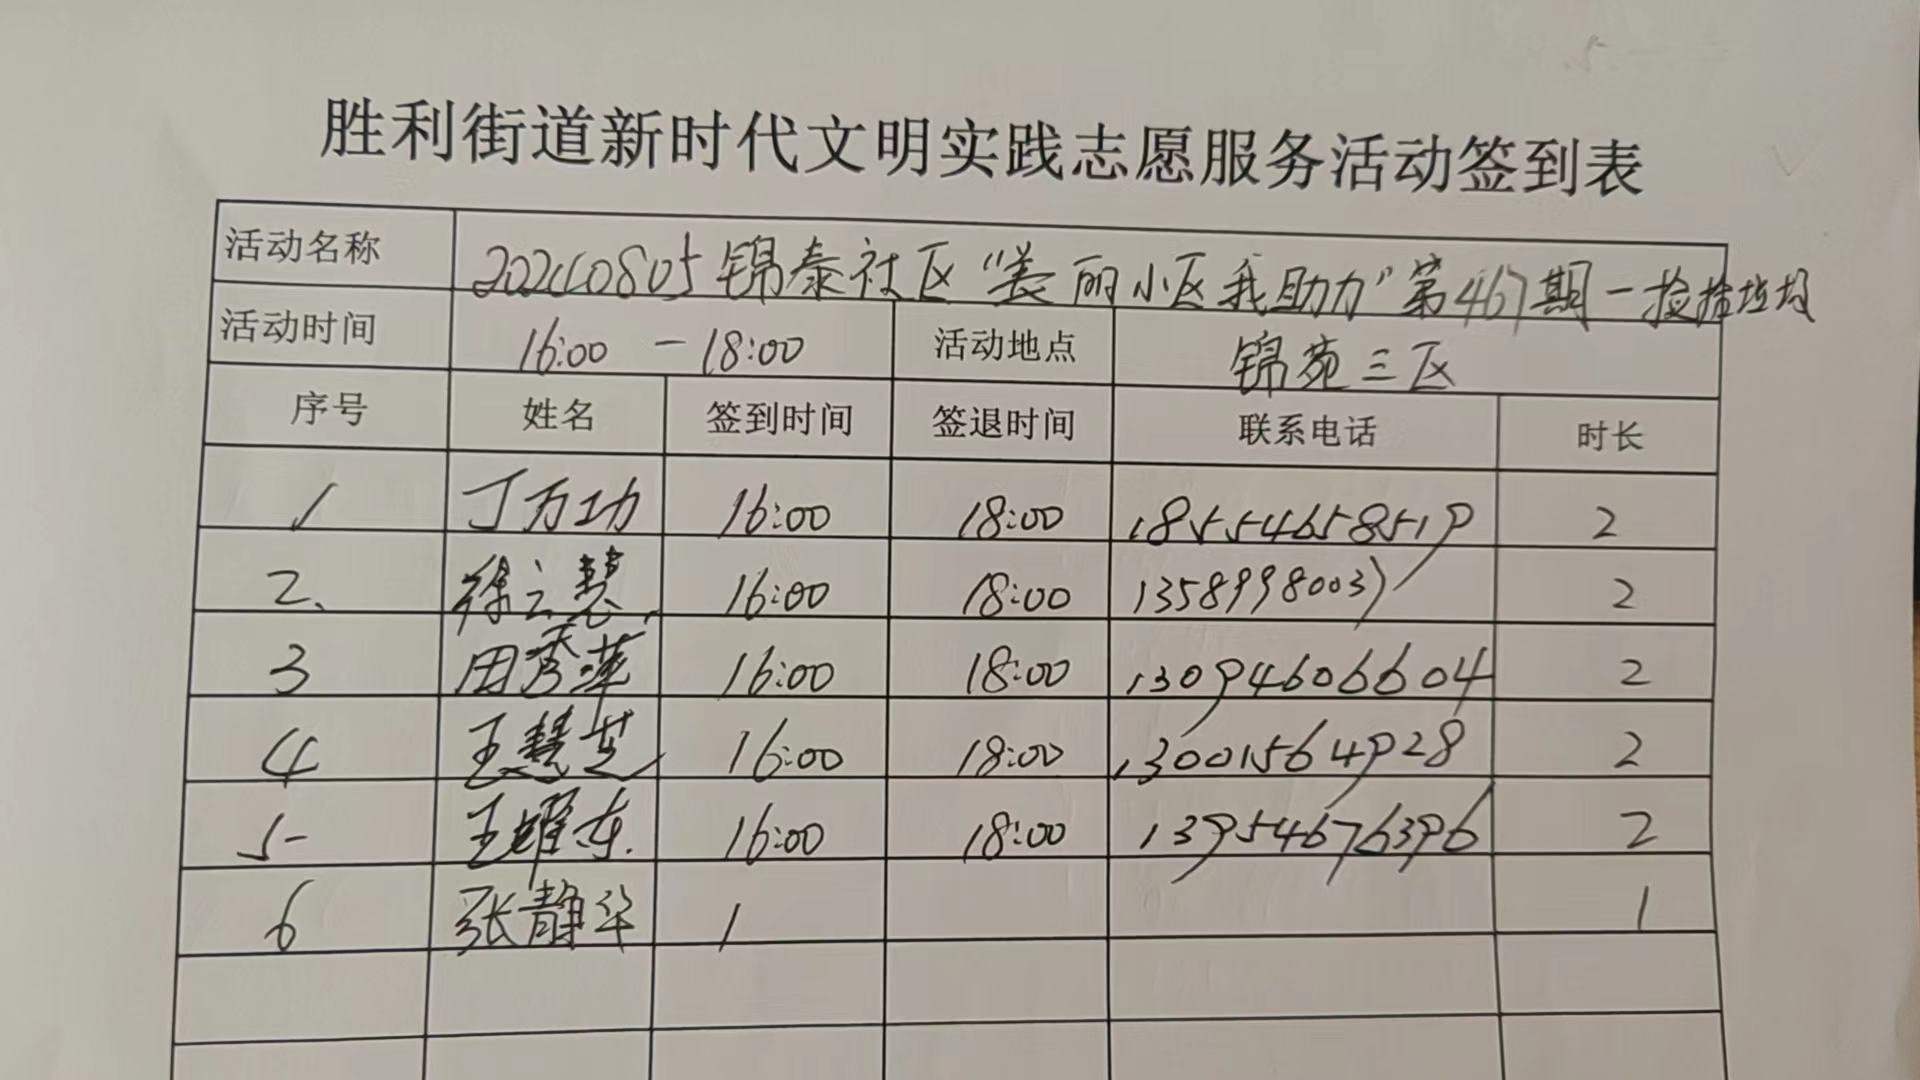 胜利街道新时代文明实践志愿服务活动签到表
活动名称 20240805锦泰社区“美丽小区我助力”第467期-捡拾垃圾
活动时间 16:00 - 18:00 活动地点 锦苑三区
序号 姓名 签到时间 签退时间 联系电话 时长
1 丁万功 16:00 18:00 18554658519 2
2、 徐云慧 16:00 18:00 13589980037 2
3 田秀苹 16:00 18:00 13094606604 2
4 王慧芝 16:00 18:00 13001564928 2
5 王耀东 16:00 18:00 13954676396 2
6 张静华 1 1